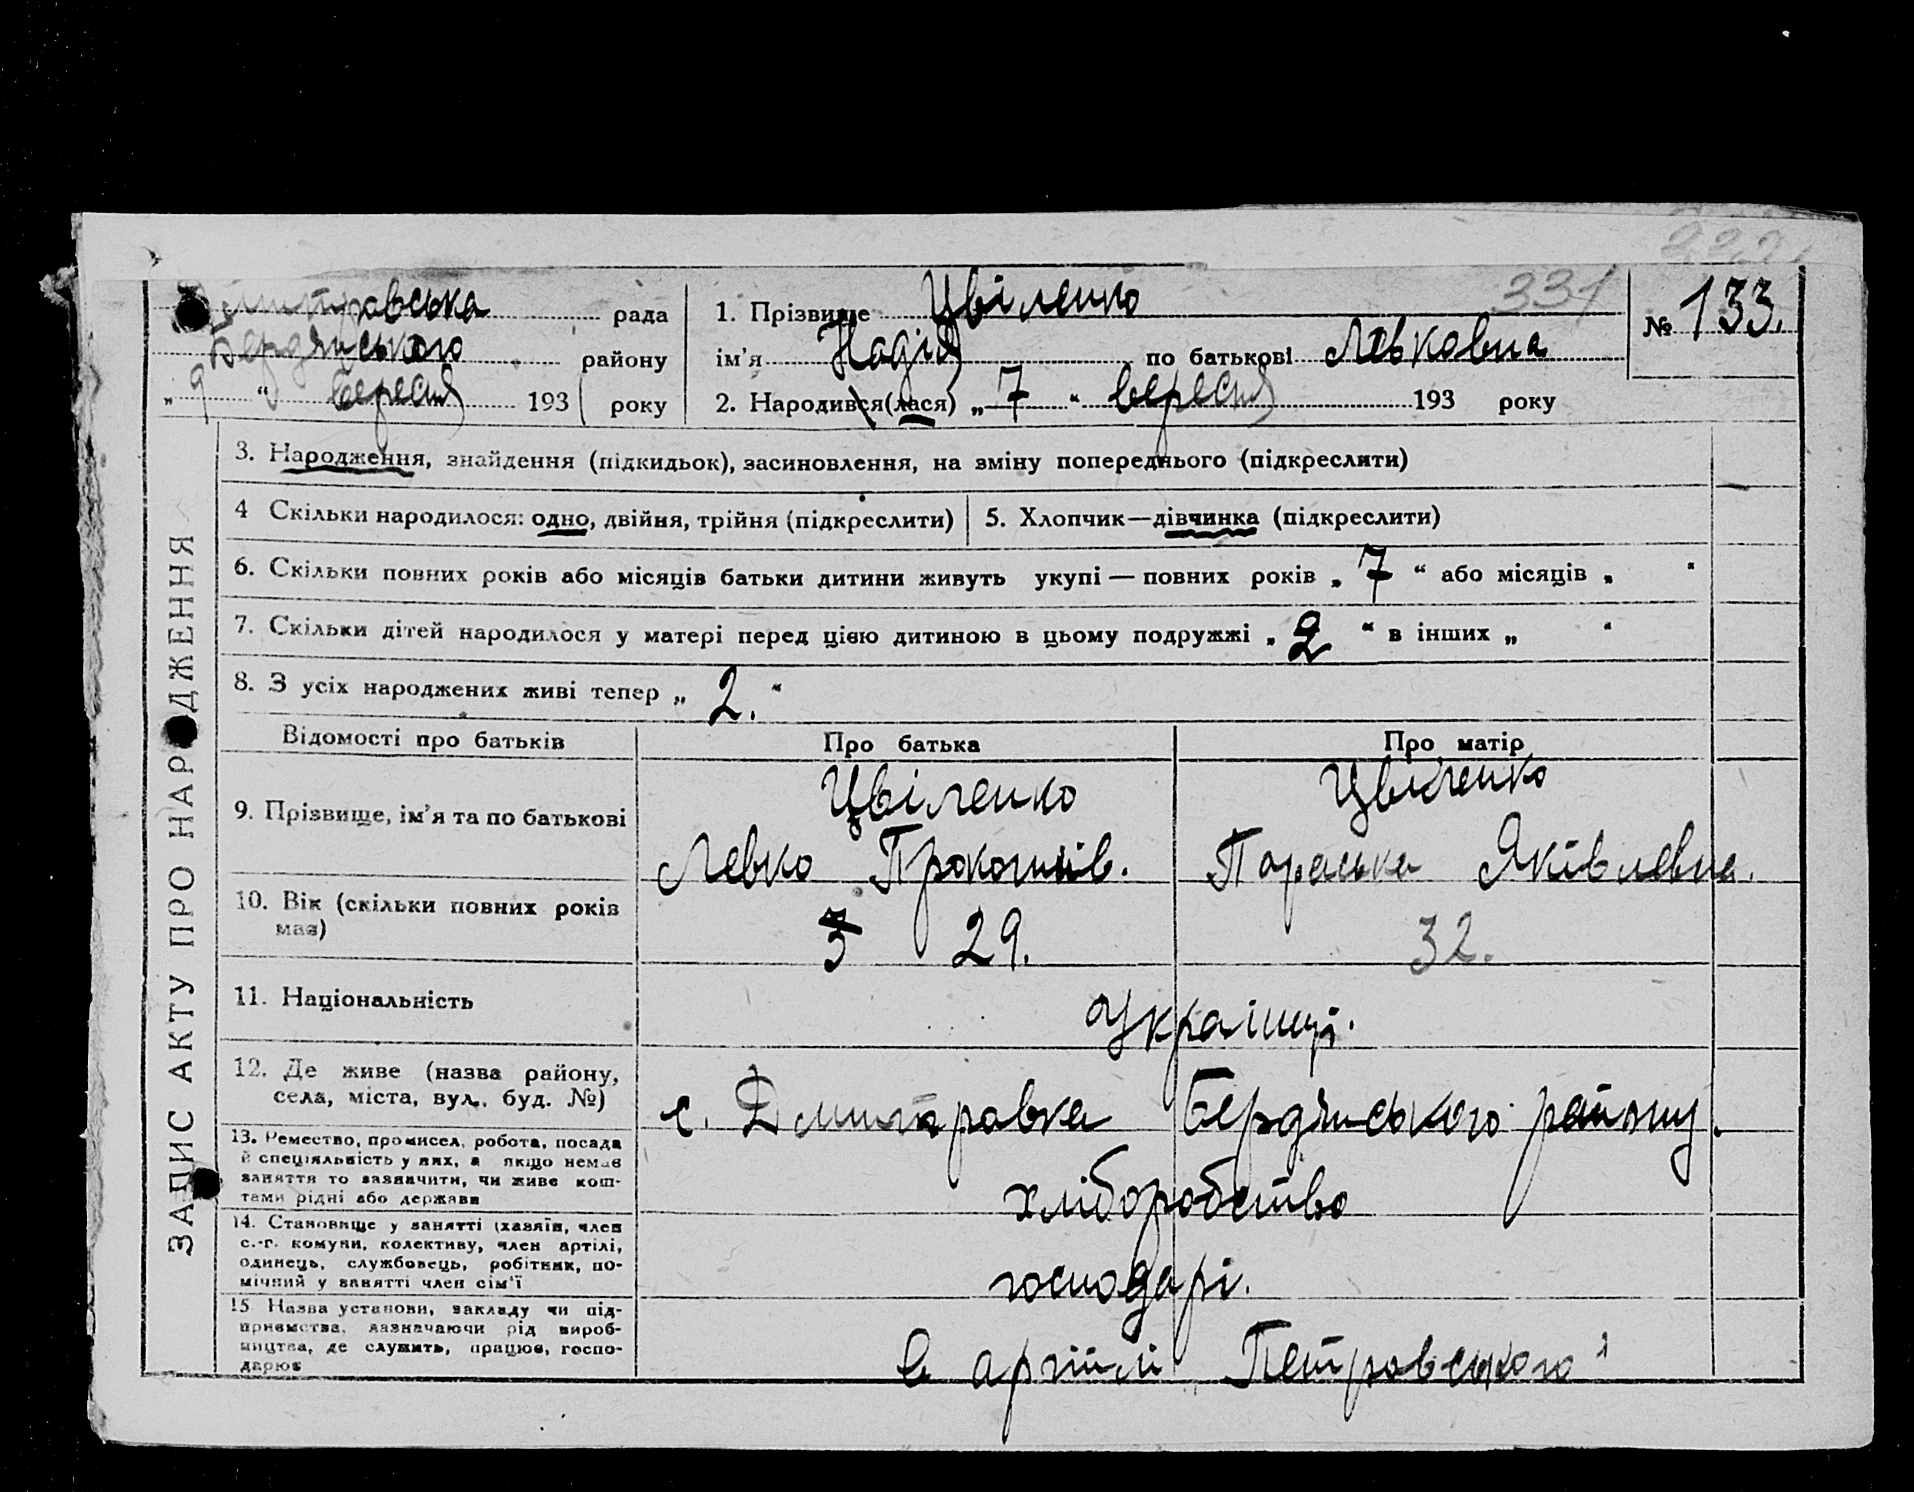 Дмитравська рада
Бердянського району
„ 9 “ вересня 193 року
1. Прізвище Цвіленко
331
№ 133.
ім'я Надія по батькові Левковна
2. Народився(лася) „ 7 “ вересня 193 року
3. Народження, знайдення (підкидьок), засиновлення, на зміну попереднього (підкреслити)
4 Скільки народилося: одно, двійня, трійня (підкреслити)
5. Хлопчик—дівчинка (підкреслити)
6. Скільки повних років або місяців батьки дитини живуть укупі — повних років „ 7 “ або місяців „ “
7. Скільки дітей народилося у матері перед цією дитиною в цьому подружжі „ 2 “ в інших „ “
8. З усіх народжених живі тепер „ 2. “
Відомості про батьків Про батька Про матір
9. Прізвище, ім'я та по батькові
Цвіленко
Левко
Цвіленко
Параська Яківлевна.
10. Вік (скільки повних років
має)
3 29.
32.
11. Національність
Українці.
12. Де живе (назва району,
села, міста, вул., буд. №)
с. Дмитравка Бердянського району.
13. Ремество, промисел, робота, посада
й спеціяльність у них, а якщо немає
заняття то зазначити, чи живе кош-
тами рідні або держави
хліборобство
14. Становище у занятті (хазяїн, член
с.-г. комуни, колективу, член артілі,
одинець, службовець, робітник, по-
мічний у занятті член сім'ї
господарі.
15 Назва установи, закладу чи під-
приємства, зазначаючи рід вироб-
ництва, де служить, працює, госпо-
дарює
в артілі „Петровського"
ЗАПИС АКТУ ПРО НАРОДЖЕННЯ